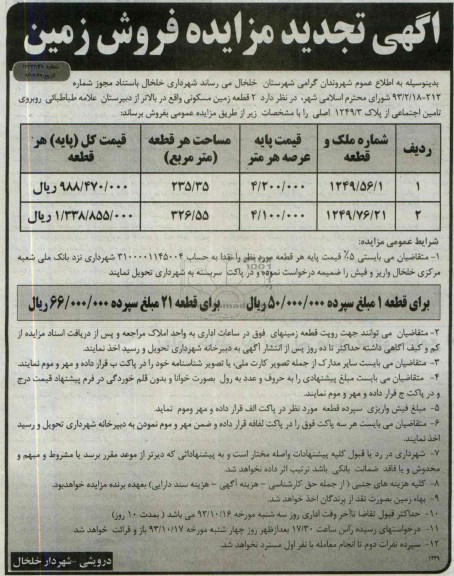 آگهی تجدید مزایده فروش زمین
بدینوسیله به اطلاع عموم شهروندان گرامی شهرستان خلخال می رساند شهرداری خلخال باستناد مجوز شماره
۹۳/۲/۱۸-۲۱۲ شورای محترم اسلامی شهر، در نظر دارد ۲ قطعه زمین مسکونی واقع در بالاتر از دبیرستان علامه طباطبائی روبروی
تامین اجتماعی از پلاک ۱۲۴۹/۳ اصلی را با مشخصات زیر از طریق مزایده عمومی بفروش برساند:
ردیف شماره ملک و قطعه قیمت پایه عرصه هر متر مساحت هر قطعه (متر مربع) قیمت کل (پایه) هر قطعه
۱ ۱۲۴۹/۵۶/۱ ۴/۲۰۰/۰۰۰ ۲۳۵/۳۵ ۹۸۸/۴۷۰/۰۰۰ ریال
۲ ۱۲۴۹/۷۶/۲۱ ۴/۱۰۰/۰۰۰ ۳۲۶/۵۵ ۱/۳۳۸/۸۵۵/۰۰۰ ریال
شرایط عمومی مزایده:
۱- متقاضیان می بایستی ۵٪ قیمت پایه هر قطعه مورد نظر را نقدا به حساب ۳۱۰۰۰۰۱۱۴۵۰۰۴ شهرداری نزد بانک ملی شعبه
مرکزی خلخال واریز و فیش را ضمیمه درخواست نموده و در پاکت سربسته به شهرداری تحویل نمایند
برای قطعه 1 مبلغ سپرده ۵۰/۰۰۰/۰۰۰ ریال برای قطعه 21 مبلغ سپرده ۶۶/۰۰۰/۰۰۰ ریال
۲- متقاضیان می توانند جهت رویت قطعه زمینهای فوق در ساعات اداری به واحد املاک مراجعه و پس از دریافت اسناد مزایده از
کم و کیف آگاهی داشته حداکثر تا ده روز پس از انتشار آگهی به دبیرخانه شهرداری تحویل و رسید اخذ نمایند.
۳- متقاضیان می بایست سایر مدارک از جمله تصویر کارت ملی، یا تصویر شناسنامه خود را در پاکت ب قرار داده و مهر و موم نمایند.
۴- متقاضیان می بایست مبلغ پیشنهادی را به حروف و عدد به رول بصورت خوانا و بدون قلم خوردگی در فرم پیشنهاد قیمت درج
و در پاکت ج قرار داده و مهر و موم نمایند.
۵- مبلغ فیش واریزی سپرده قطعه مورد نظر در پاکت الف قرار داده و مهر وموم نماید.
۶- متقاضیان می بایست هر سه پاکت فوق را در پاکت لفافه قرار داده و ضمن مهر و موم نمودن به دبیرخانه شهرداری تحویل و رسید
اخذ نمایند.
۷- شهرداری در رد یا قبول کلیه پیشنهادات واصله مختار است و به پیشنهاداتی که دیرتر از موعد مقرر برسد یا مشروط و مبهم و
مخدوش و یا فاقد ضمانت بانکی باشد ترتیب اثر داده نخواهد شد.
۸- کلیه هزینه های جنبی ( از جمله حق کارشناسی - هزینه آگهی - هزینه سند دارایی) بعهده برنده مزایده خواهدبود.
۹- بهاء زمین بصورت نقد از برندگان اخذ خواهد شد.
۱۰- حداکثر قبول تقاضا تاآخر وقت اداری روز سه شنبه مورخه ۹۳/۱۰/۱۶ می باشد ( بمدت ۱۰ روز)
۱۱- درخواستهای رسیده رأس ساعت ۱۷/۳۰ بعدازظهر روز چهار شنبه مورخه ۹۳/۱۰/۱۷ باز و قرائت خواهد شد
۱۲- سپرده نفرات دوم تا انجام معامله با نفر اول مسترد نخواهد شد.
درویشی -شهردار خلخال